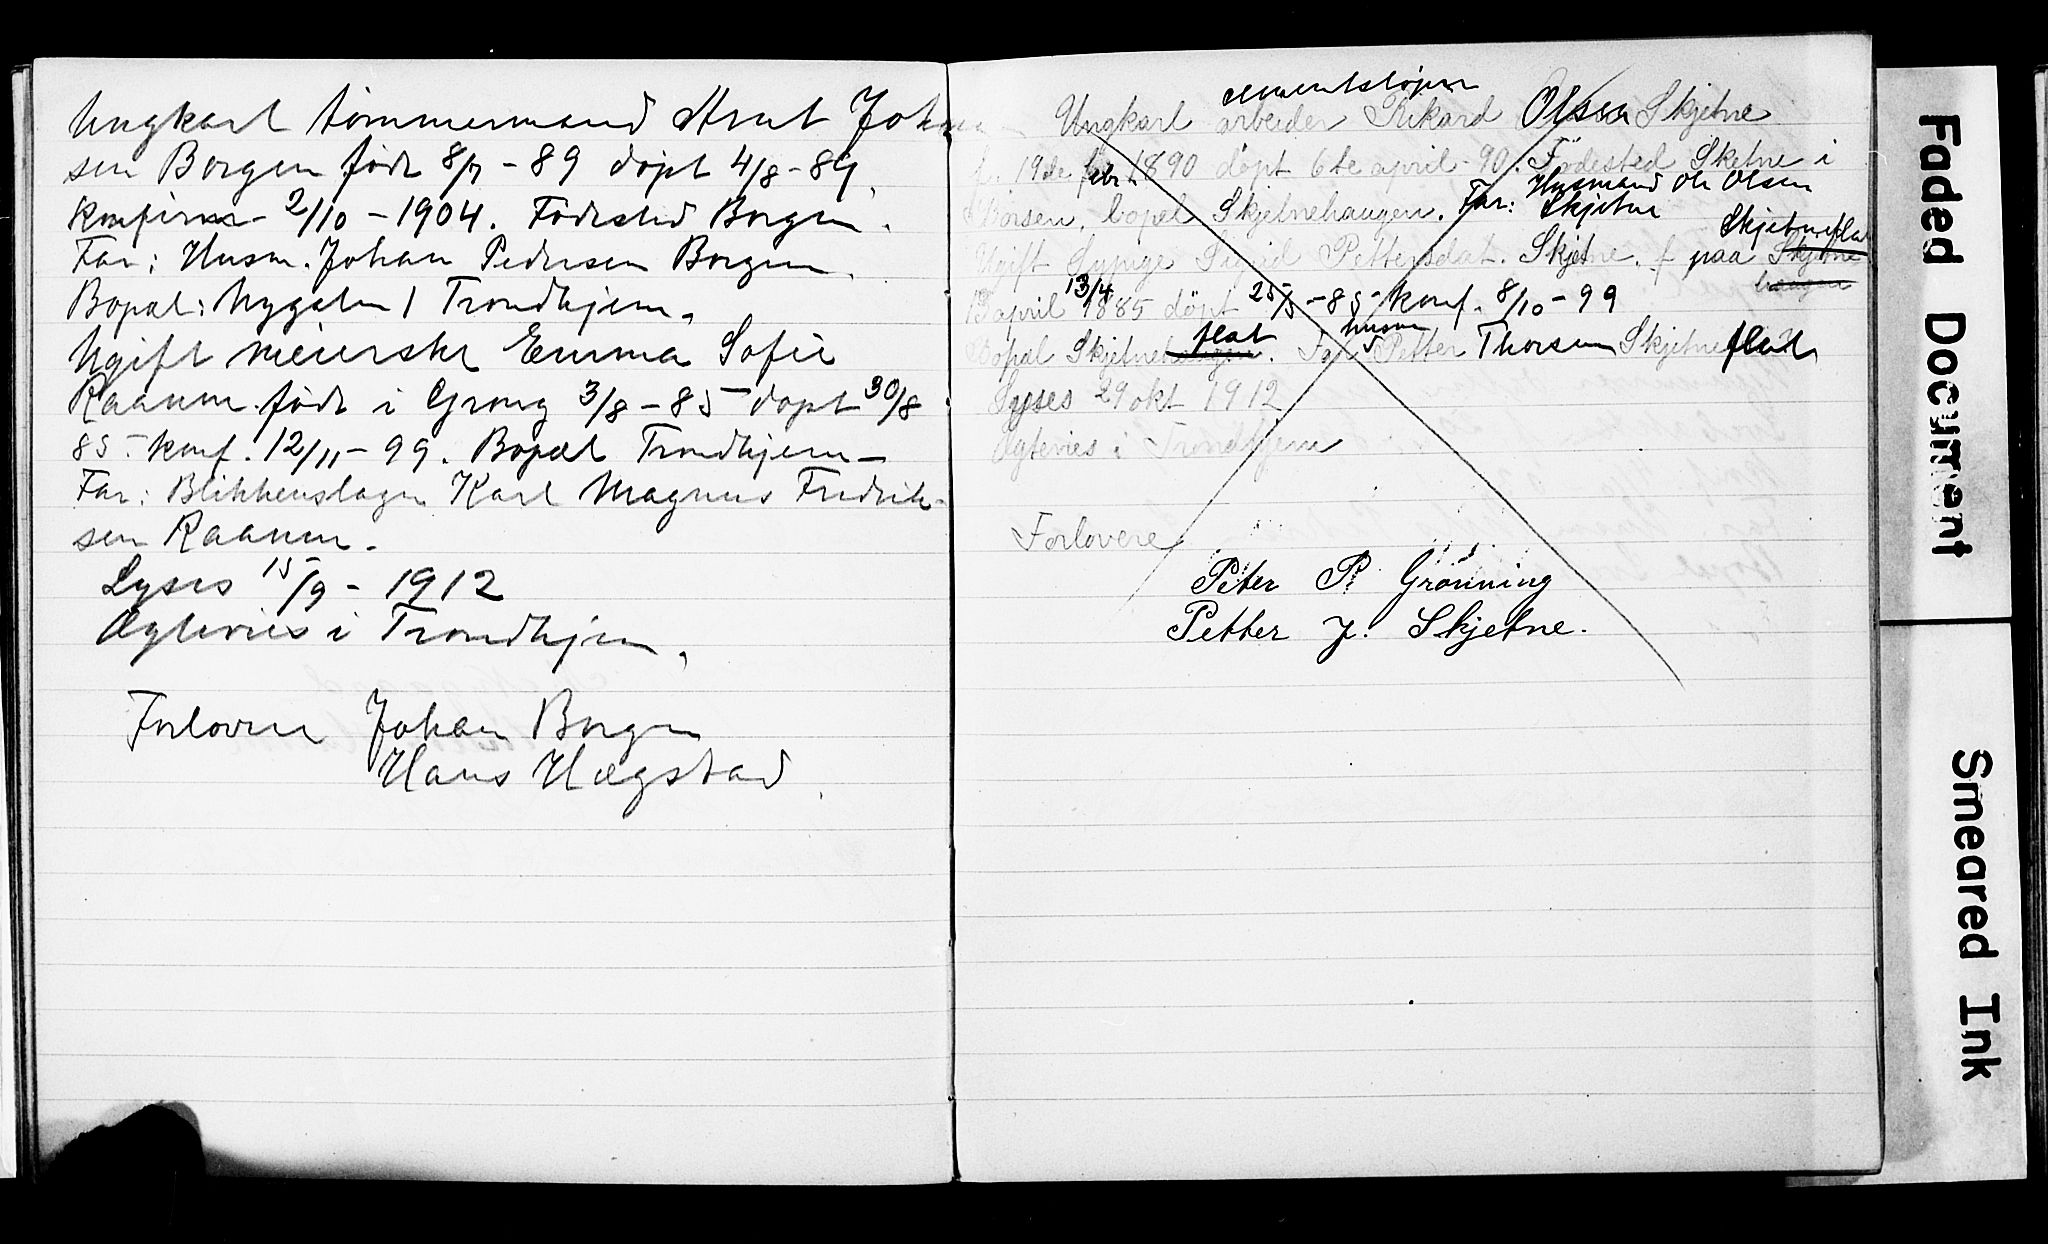 Ungkarl tømmermand Arnt Johan-
sen Borgen født 8/7 - 89 døpt 4/8 - 89,
konfirm - 2/10 - 1904. Fødested Borgen.
Far: Husm. Johan Pedersen Borgen.
Bopæl: Nygaten 1 Trondhjem.
Ugift meierske Emma Sofie
Raanum. født i Grong 3/8 - 85 døpt 30/8
85 - konf. 12/11 - 99. Bopæl Trondhjem -
Far: Blikkenslager Karl Magnus Fredrik-
sen Raanum.
Lyses 15/9 - 1912
Ægtevies i Trondhjem.
Forlovere Johan Borgen
Hans Hægstad
cementstøper
Ungkarl arbeider Rikard Olsen Skjetne
f. 19de febr. 1890 døpt 6te april - 90. Fødested Skjetne i
Husmand Ole Olsen
Børsen, bopæl Skjetnehaugen. Far: Skjetne
Skjetneflat
Ugift Sypige Sigrid Pettersdat. Skjetne. f paa Skjetne
haugen
13 april 13/4 1885 døpt 25/5 - 85 - konf. 8/10 - 99
flat husm
Bopæl Skjetnehaugen. Far Petter Thorsen Skjetneflat
Lyses 29 okt 1912
Ægtevies i Trondhjem
Forlovere
Peter P. Grønning
Petter J. Skjetne.
Faded Document
Smeared Ink